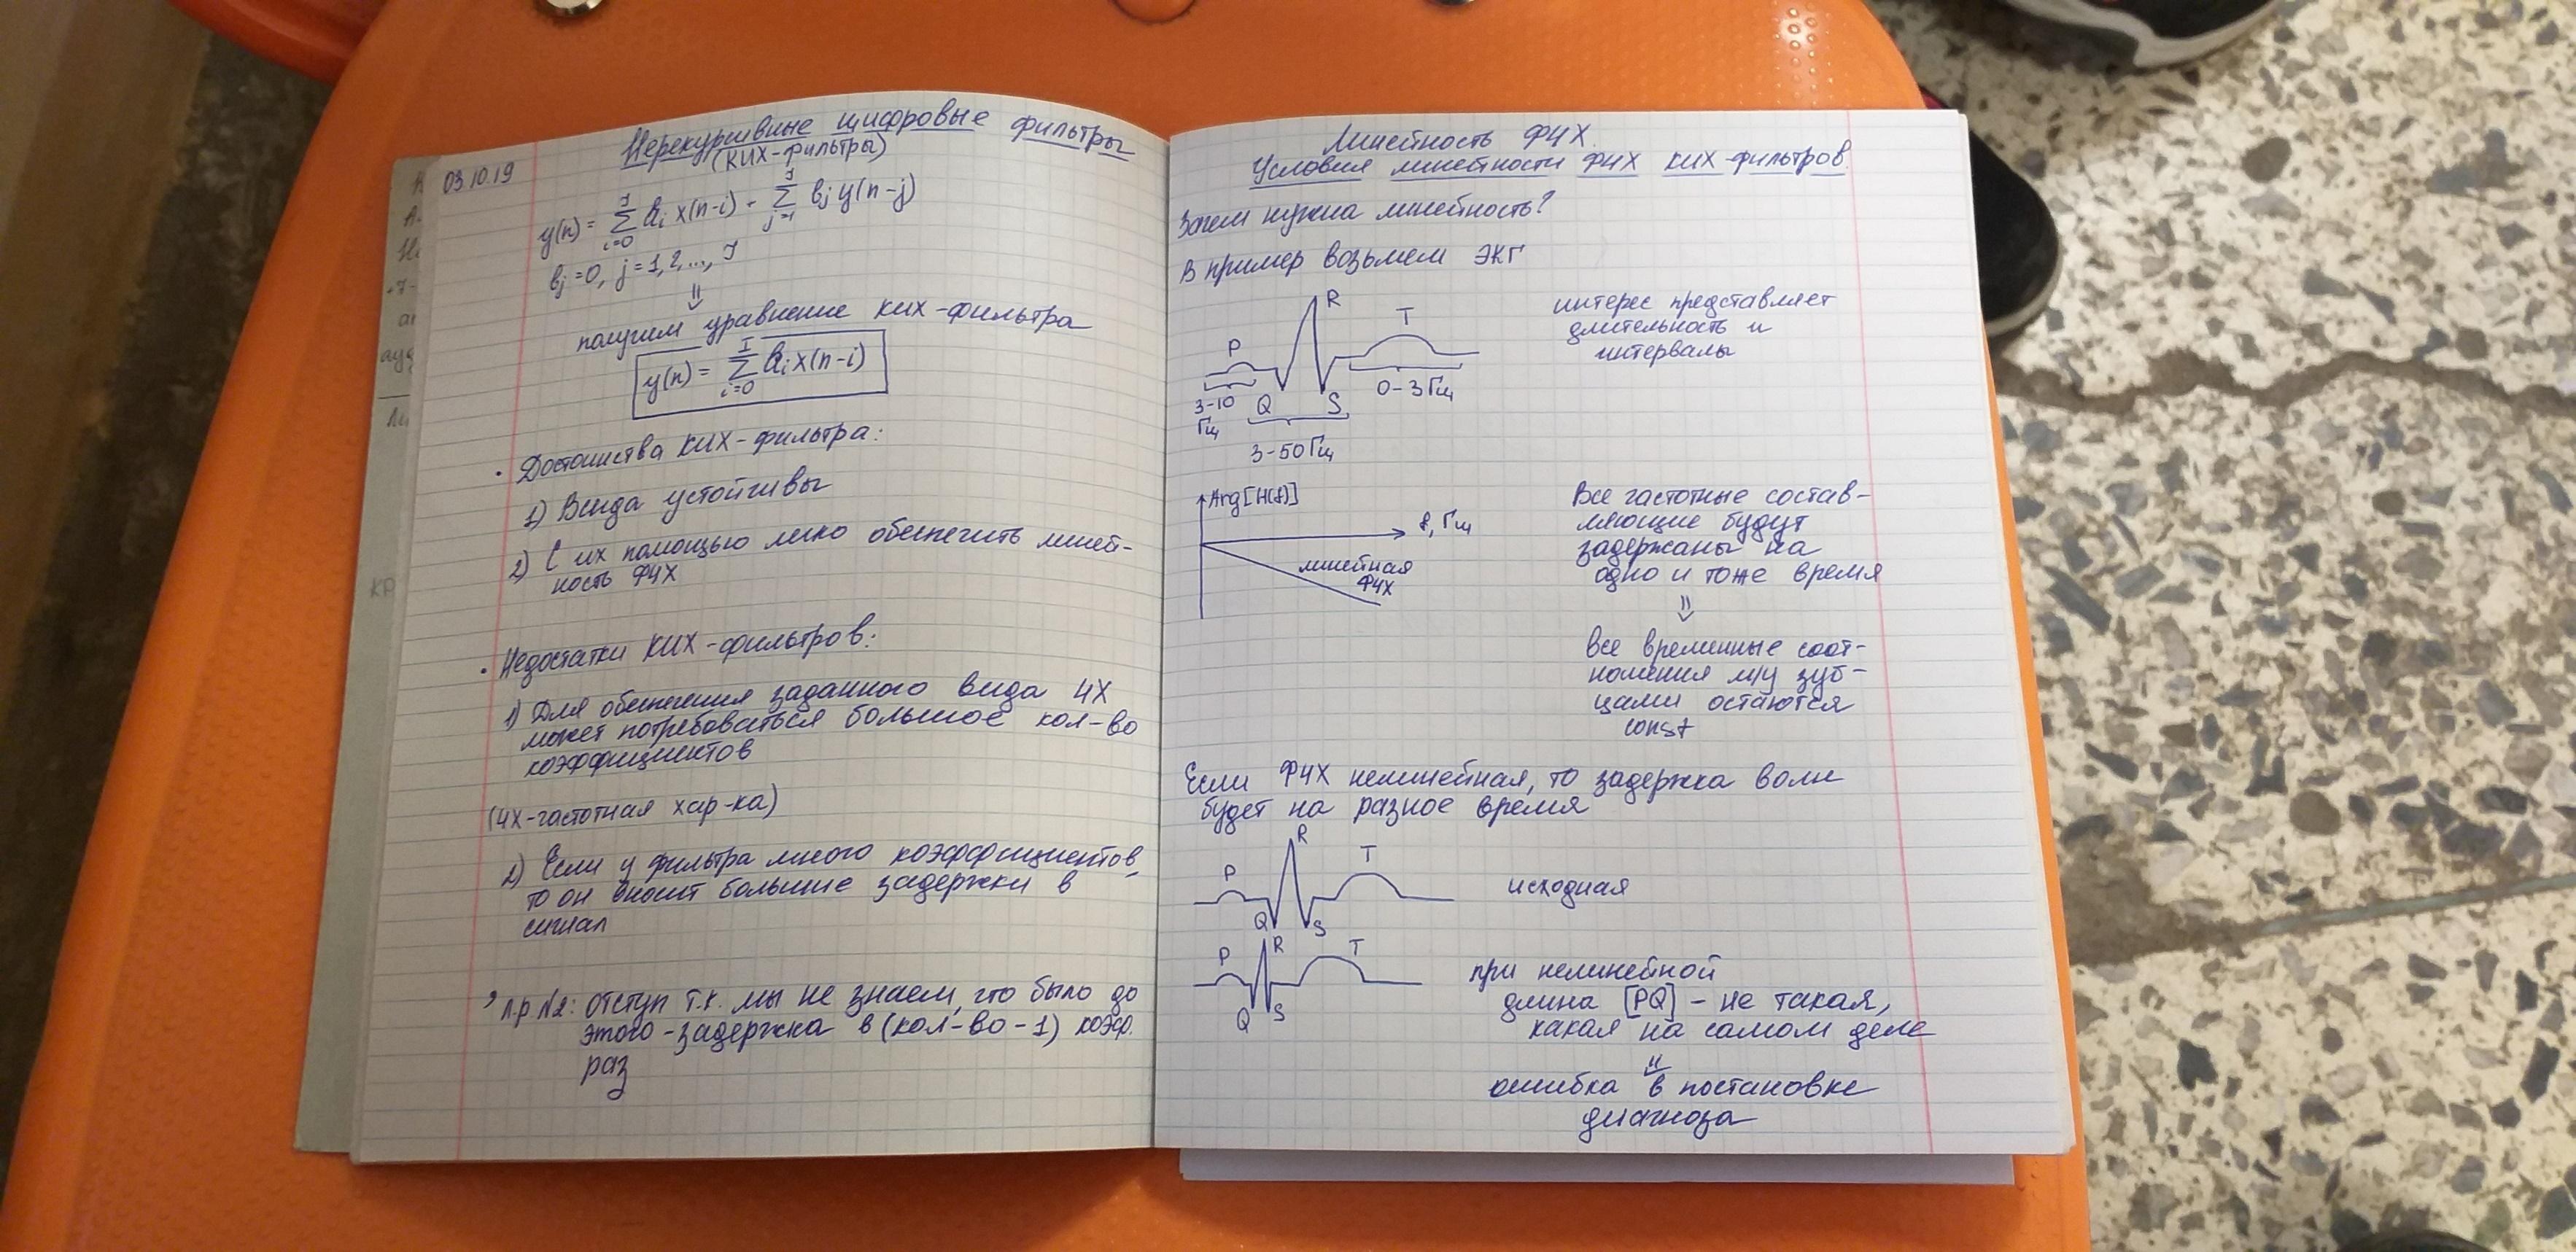 03.10.19
Нерекурсивные цифровые фильтры
(КИХ-фильтры)
y(n) = Σ aᵢ x(n-i) - Σ bⱼ y(n-j)
bj=0, j=1,2,..., J
⇓
получим уравнение КИХ-фильтра
y(n) = Σ aᵢ x(n-i)
· Достоинства КИХ-фильтра:
1) Всегда устойчивы
2) С их помощью легко обеспечить линей-
ность ФЧХ
· Недостатки КИХ-фильтров:
1) Для обеспечения заданного вида ЧХ
может потребоваться большое кол-во
коэффициентов
(ЧХ-частотная хар-ка)
2) Если у фильтра много коэффициентов,
то он вносит большие задержки в
сигнал
л.р №2: отступ т.к. мы не знаем, что было до
этого-задержка в (кол-во-1) коэф.
раз
Линейность ФЧХ.
Условия линейности ФЧХ КИХ-фильтров.
Зачем нужна линейность?
В пример возьмем ЭКГ
P
R
T
3-10
Гц
Q
S
0-3Гц
3-50Гц
интерес представляет
длительность и
интервалы
Arg[H(f)]
f, Гц
линейная
ФЧХ
Все частотные состав-
ляющие будут
задержаны на
одно и тоже время
⇓
все временные соот-
ношения м/у зуб-
цами остаются
const
Если ФЧХ нелинейная, то задержка волн
будет на разное время
P
R
T
Q
S
исходная
P
R
T
Q
S
при нелинейной
длина [PQ] - не такая,
какая на самом деле
⇓
ошибка в постановке
диагноза